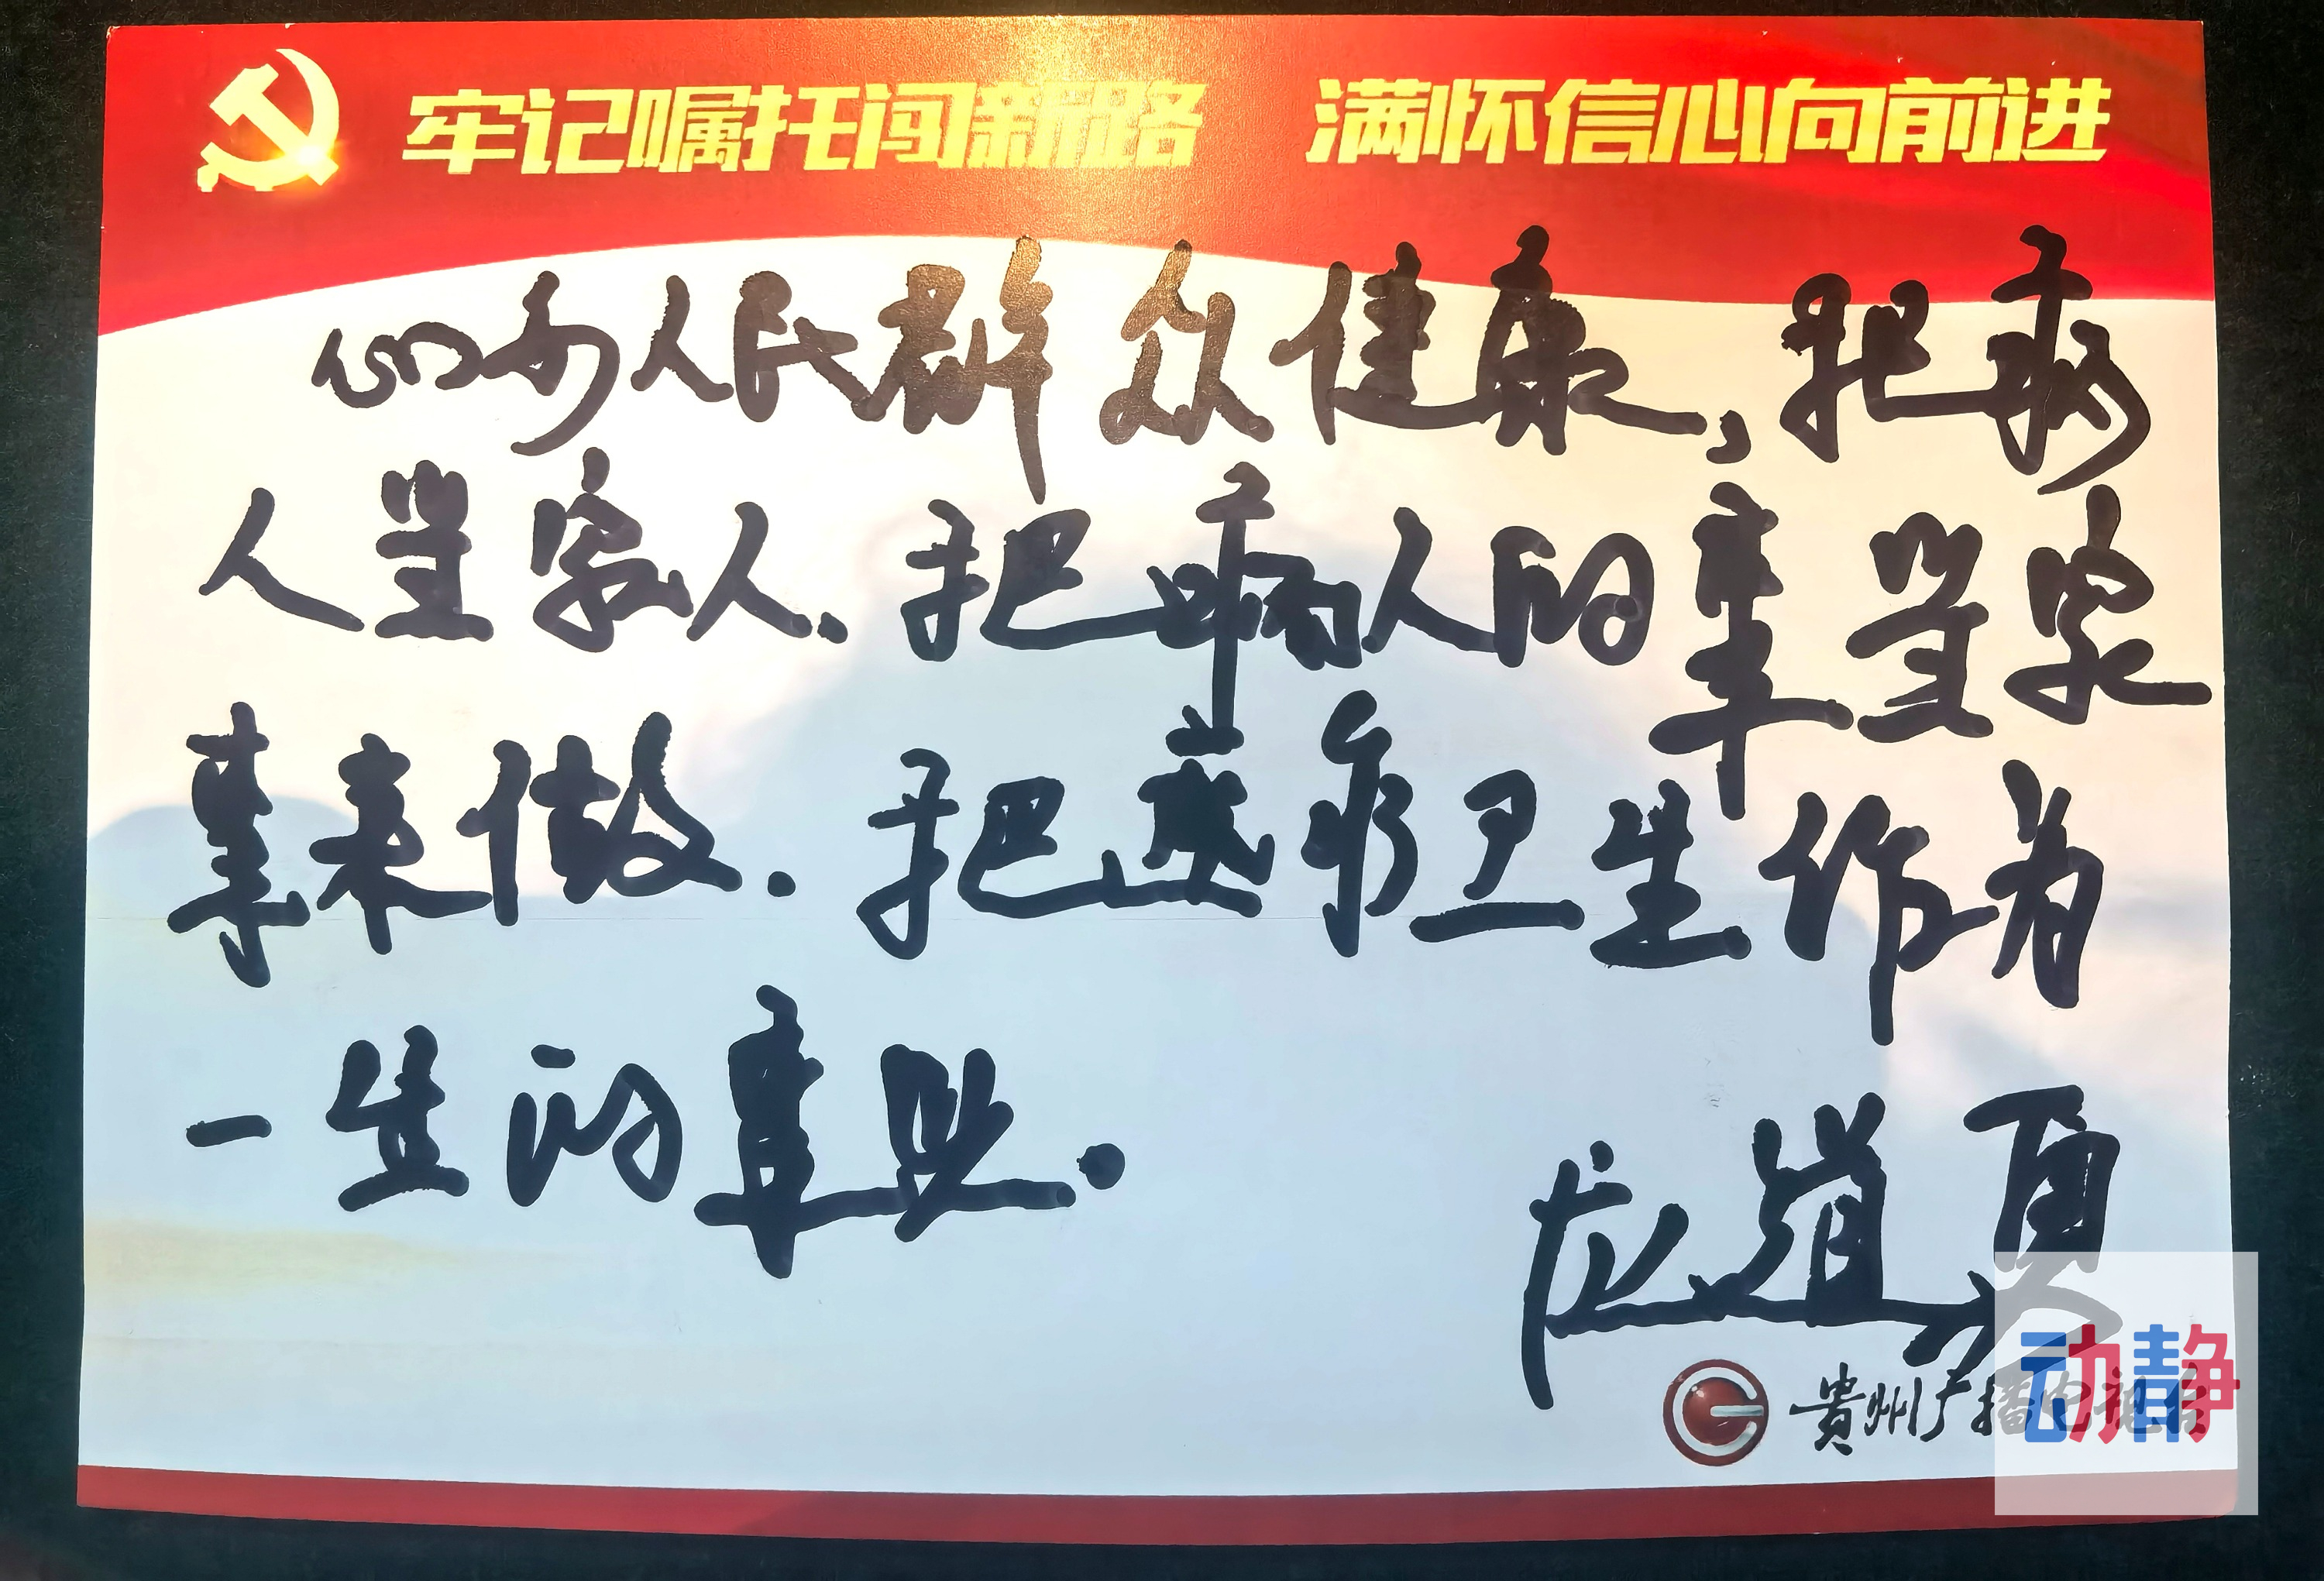 牢记嘱托闯新路 满怀信心向前进
人民群众健康,把病
人当家人.把病人的事当家
事来做.把医疗卫生作为
一生的事业.
貴州广播电视台
动静